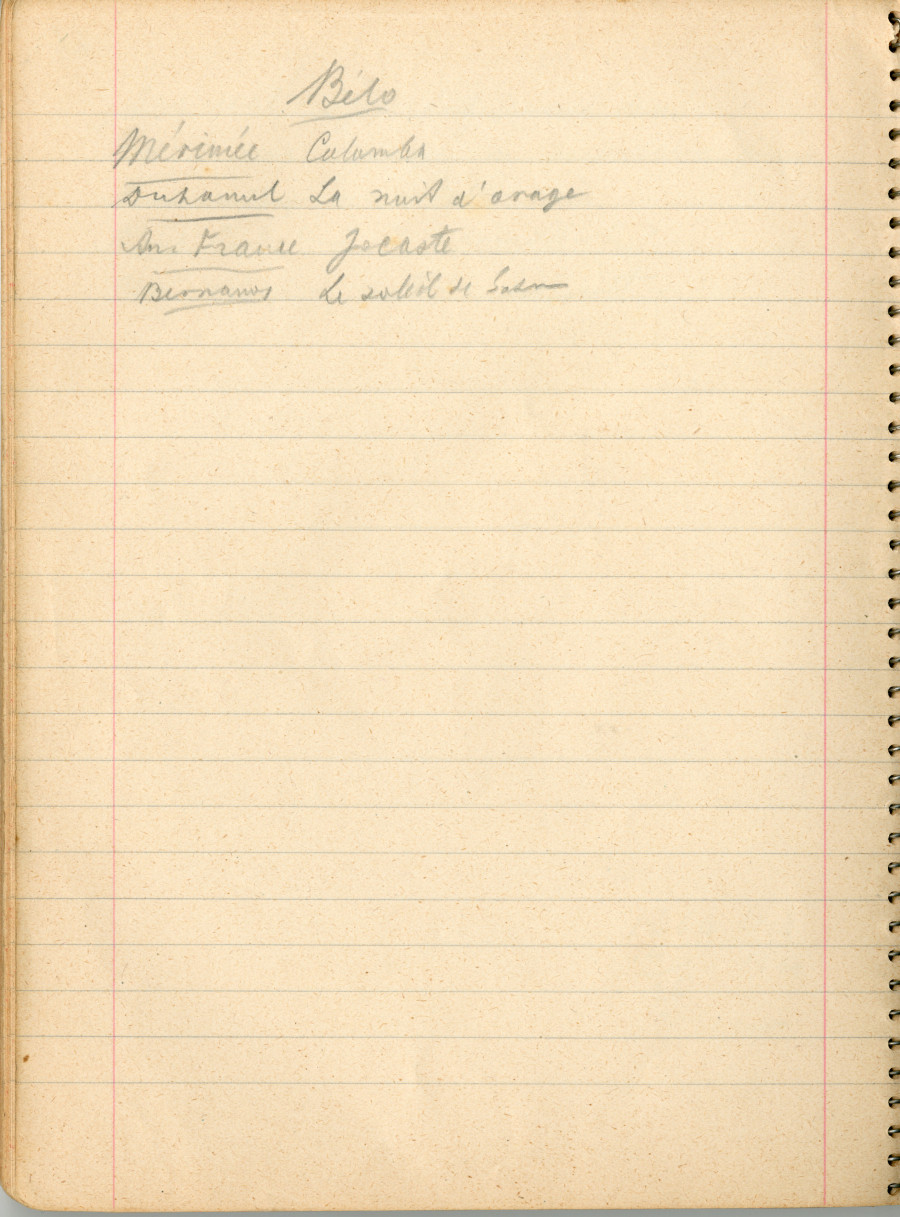 Bélo
Mérimée Colomba
Duhamel La nuit d'orage
An. France Jocaste
Bernanos Le soleil de Satan